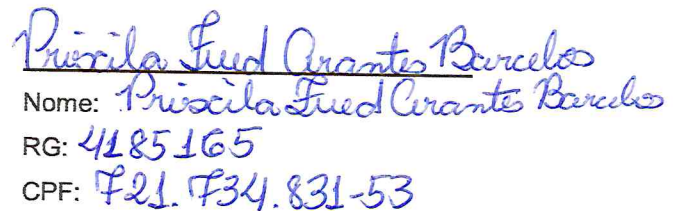 Priscila Fued Arantes Barcelos
Nome: Priscila Fued Arantes Barcelos
RG: 4185165
CPF: 721.734.831-53